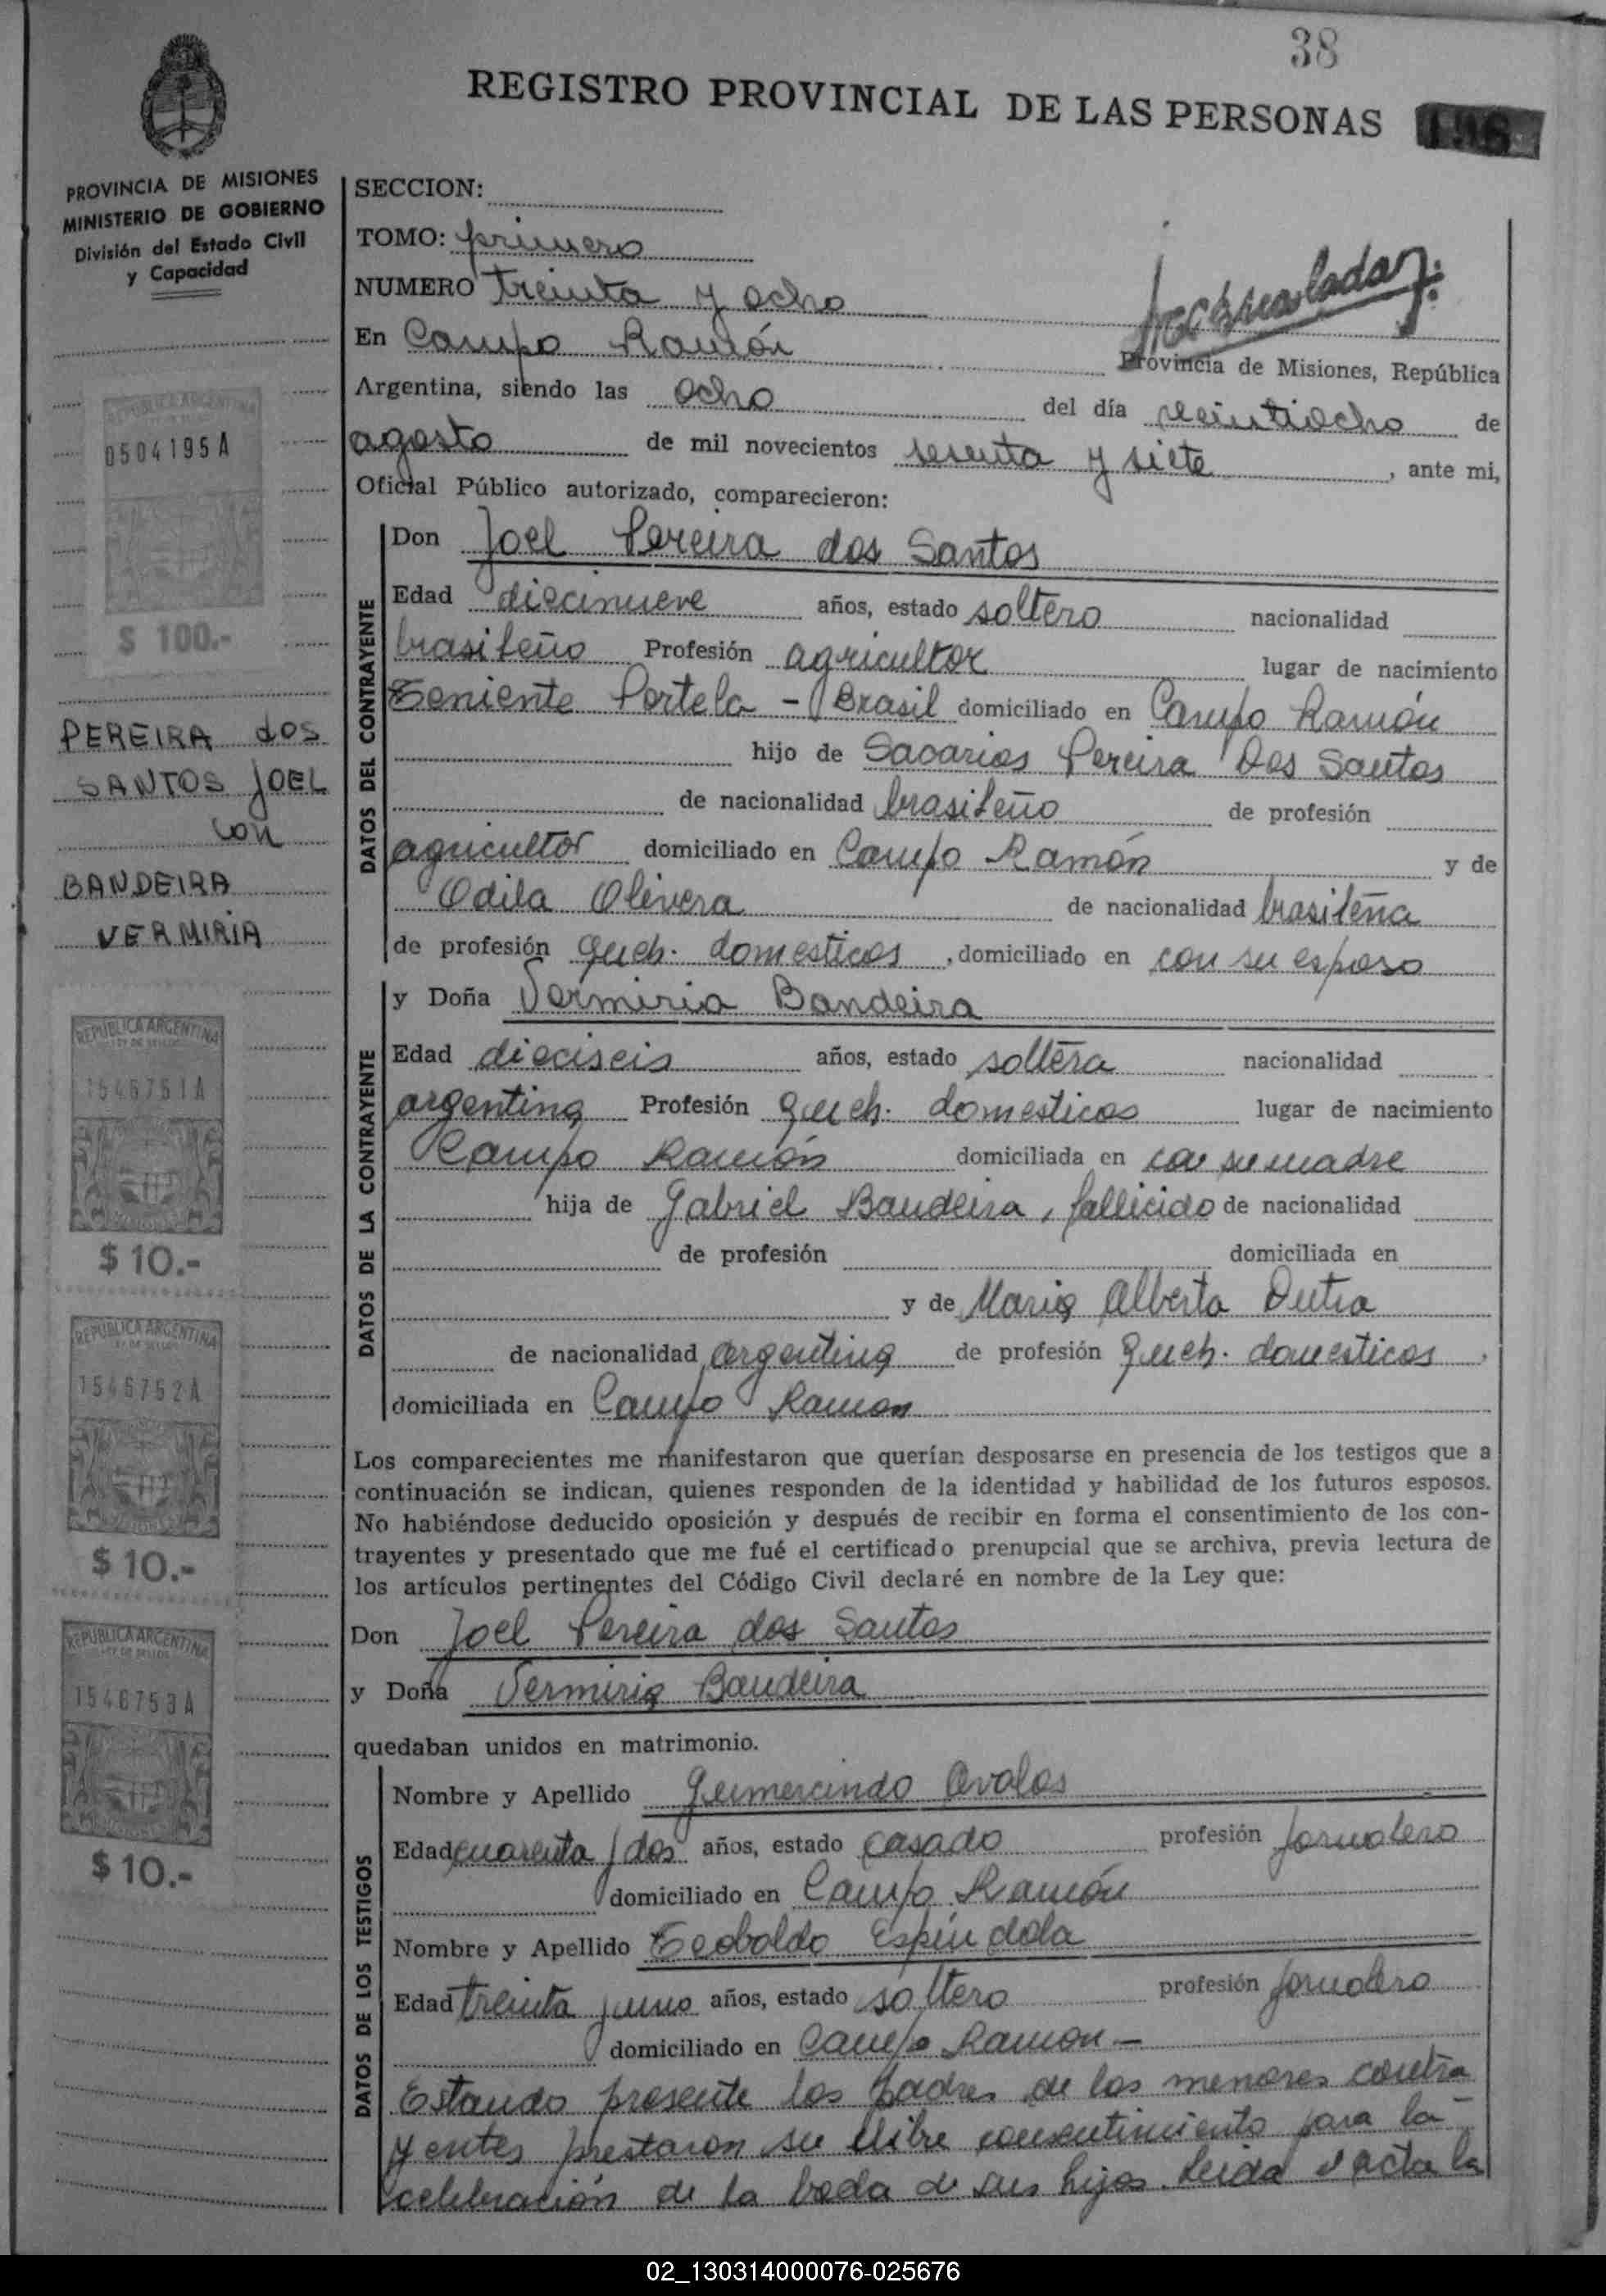 38
REGISTRO PROVINCIAL DE LAS PERSONAS
PROVINCIA DE MISIONES
MINISTERIO DE GOBIERNO
División del Estado Civil
y Capacidad
SECCION:
TOMO: primero
NUMERO treinta y ocho
En Campo Ramón
Provincia de Misiones, República
Argentina, siendo las ocho del día veintiocho de
agosto de mil novecientos sesenta y siete, ante mi,
Oficial Público autorizado, comparecieron:
REPUBLICA ARGENTINA
0504195A
$ 100.-
PEREIRA dos
SANTOS JOEL
con
BANDEIRA
VERMIRIA
REPUBLICA ARGENTINA
LEY DE SELLOS
1546751A
$ 10.-
REPUBLICA ARGENTINA
LEY DE SELLOS
1546752A
$ 10.-
REPUBLICA ARGENTINA
LEY DE SELLOS
1546753A
$ 10.-
DATOS DEL CONTRAYENTE
Don Joel Pereira dos Santos
Edad diecinueve años, estado soltero nacionalidad
brasileño Profesión agricultor lugar de nacimiento
Teniente Portela - Brasil domiciliado en Campo Ramón
hijo de Sacarias Pereira Dos Santos
de nacionalidad brasileño de profesión
agricultor domiciliado en Campo Ramón y de
Odila Olivera de nacionalidad brasileña
de profesión queh. domesticos, domiciliado en con su esposo
DATOS DE LA CONTRAYENTE
y Doña Vermiria Bandeira
Edad dieciseis años, estado soltera nacionalidad
argentina Profesión queh. domesticos lugar de nacimiento
Campo Ramón domiciliada en con su madre
hija de Gabriel Bandeira, fallicido de nacionalidad
de profesión domiciliada en
y de Maria Alberta Dutra
de nacionalidad argentina de profesión queh. domesticos,
domiciliada en Campo Ramon
Los comparecientes me manifestaron que querían desposarse en presencia de los testigos que a
continuación se indican, quienes responden de la identidad y habilidad de los futuros esposos.
No habiéndose deducido oposición y después de recibir en forma el consentimiento de los con-
trayentes y presentado que me fué el certificado prenupcial que se archiva, previa lectura de
los artículos pertinentes del Código Civil declaré en nombre de la Ley que:
Don Joel Pereira dos Santos
y Doña Vermiria Bandeira
quedaban unidos en matrimonio.
DATOS DE LOS TESTIGOS
Nombre y Apellido Gumercindo Avalos
Edad cuarenta y dos años, estado casado profesión jornalero
domiciliado en Campo Ramón
Nombre y Apellido Teoboldo Espíndola
Edad treinta y uno años, estado soltero profesión jornalero
domiciliado en Campo Ramon -
Estando presente los padres de los menores contra
yentes prestaron su llibre consentimiento para la
celebración de la boda de sus hijos. Leida el acta la
02_130314000076-025676